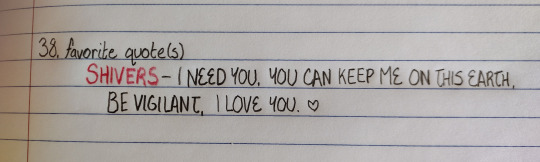 38. favorite quote(s)
SHIVERS - I NEED YOU. YOU CAN KEEP ME ON THIS EARTH.
BE VIGILANT. I LOVE YOU. ♡